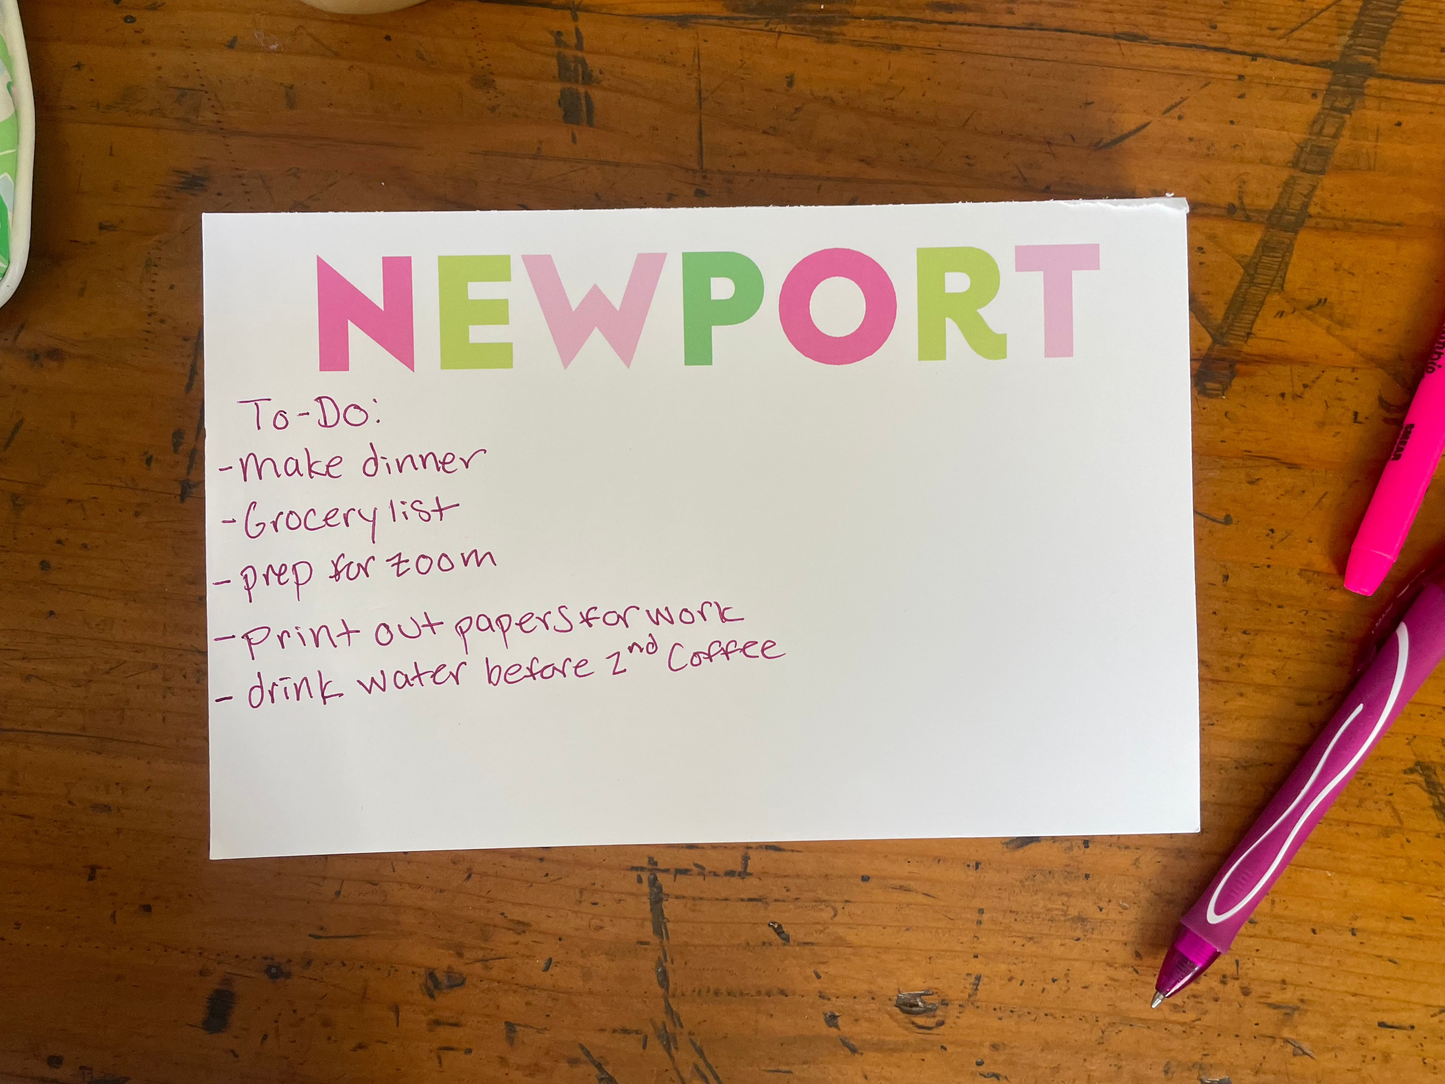 NEWPORT
To-Do:
-make dinner
-Grocery list
-prep for zoom
-print out papers for work
- drink water before 2nd Coffee